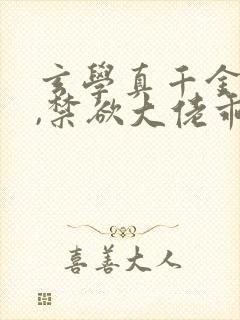 玄學真千金
,禁欲大佬乖
喜善大人